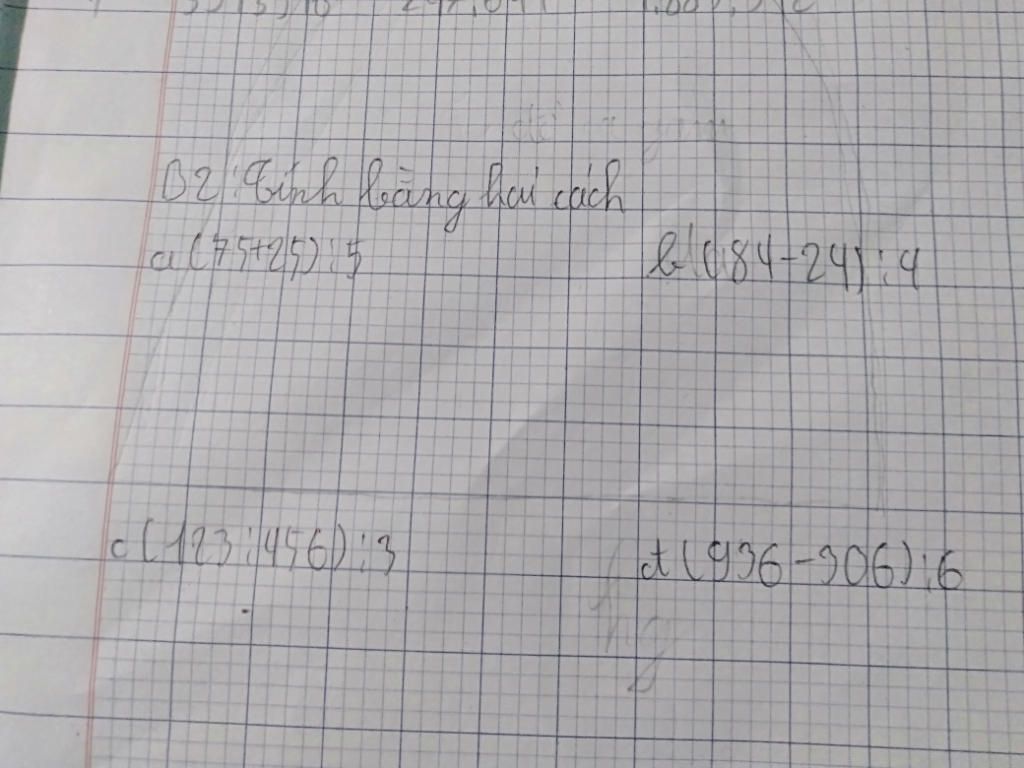 B2: Tính bằng hai cách
a (75+25) : 5 b (84-24) : 4
c (123 : 456) : 3 d (936-306) : 6